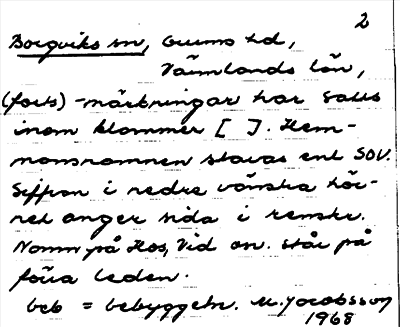 2
Borgviks sn, Grums hd,
Värmlands län,
(forts) -märkningar har satts
inom klammer [ ]. Hem-
mansnamnen stavas enl SOV.
Siffran i nedre vänstra hör-
net anger sida i renskr.
Namn på Hos, Vid o n. står på
förra leden.
beb = bebyggeln. M. Jacobsson
1968